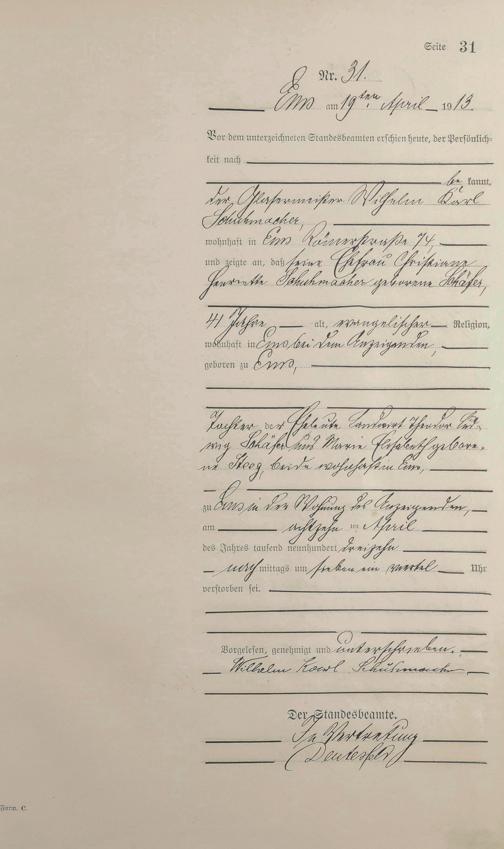 Seite 31
Nr. 31.
Ems am 19ten April 1913.
Vor dem unterzeichneten Standesbeamten erschien heute, der Persönlich-
keit nach
be kannt,
der Glasermeister Wilhelm Karl
Schuhmacher,
wohnhaft in Ems Römerstraße 74,
und zeigte an, daß seine Ehefrau Christiane
Henriette Schuhmacher geborene Schäfer,
41 Jahre alt, evangelischer Religion,
wohnhaft in Ems bei dem Anzeigenden,
geboren zu Ems,
Tochter der Eheleute Landwirt Theodor Lud-
wig Schäfer und Marie Elisabeth gebore-
ne Steeg, beide wohnhaft in Ems,
zu Ems in der Wohnung des Anzeigenden,
am achtzehn ten April
des Jahres tausend neunhundert dreizehn
nach mittags um sieben ein viertel Uhr
verstorben sei.
Vorgelesen, genehmigt und unterschrieben.
Wilhelm Karl Schuhmacher
Der Standesbeamte.
In Vertretung
Form. C.